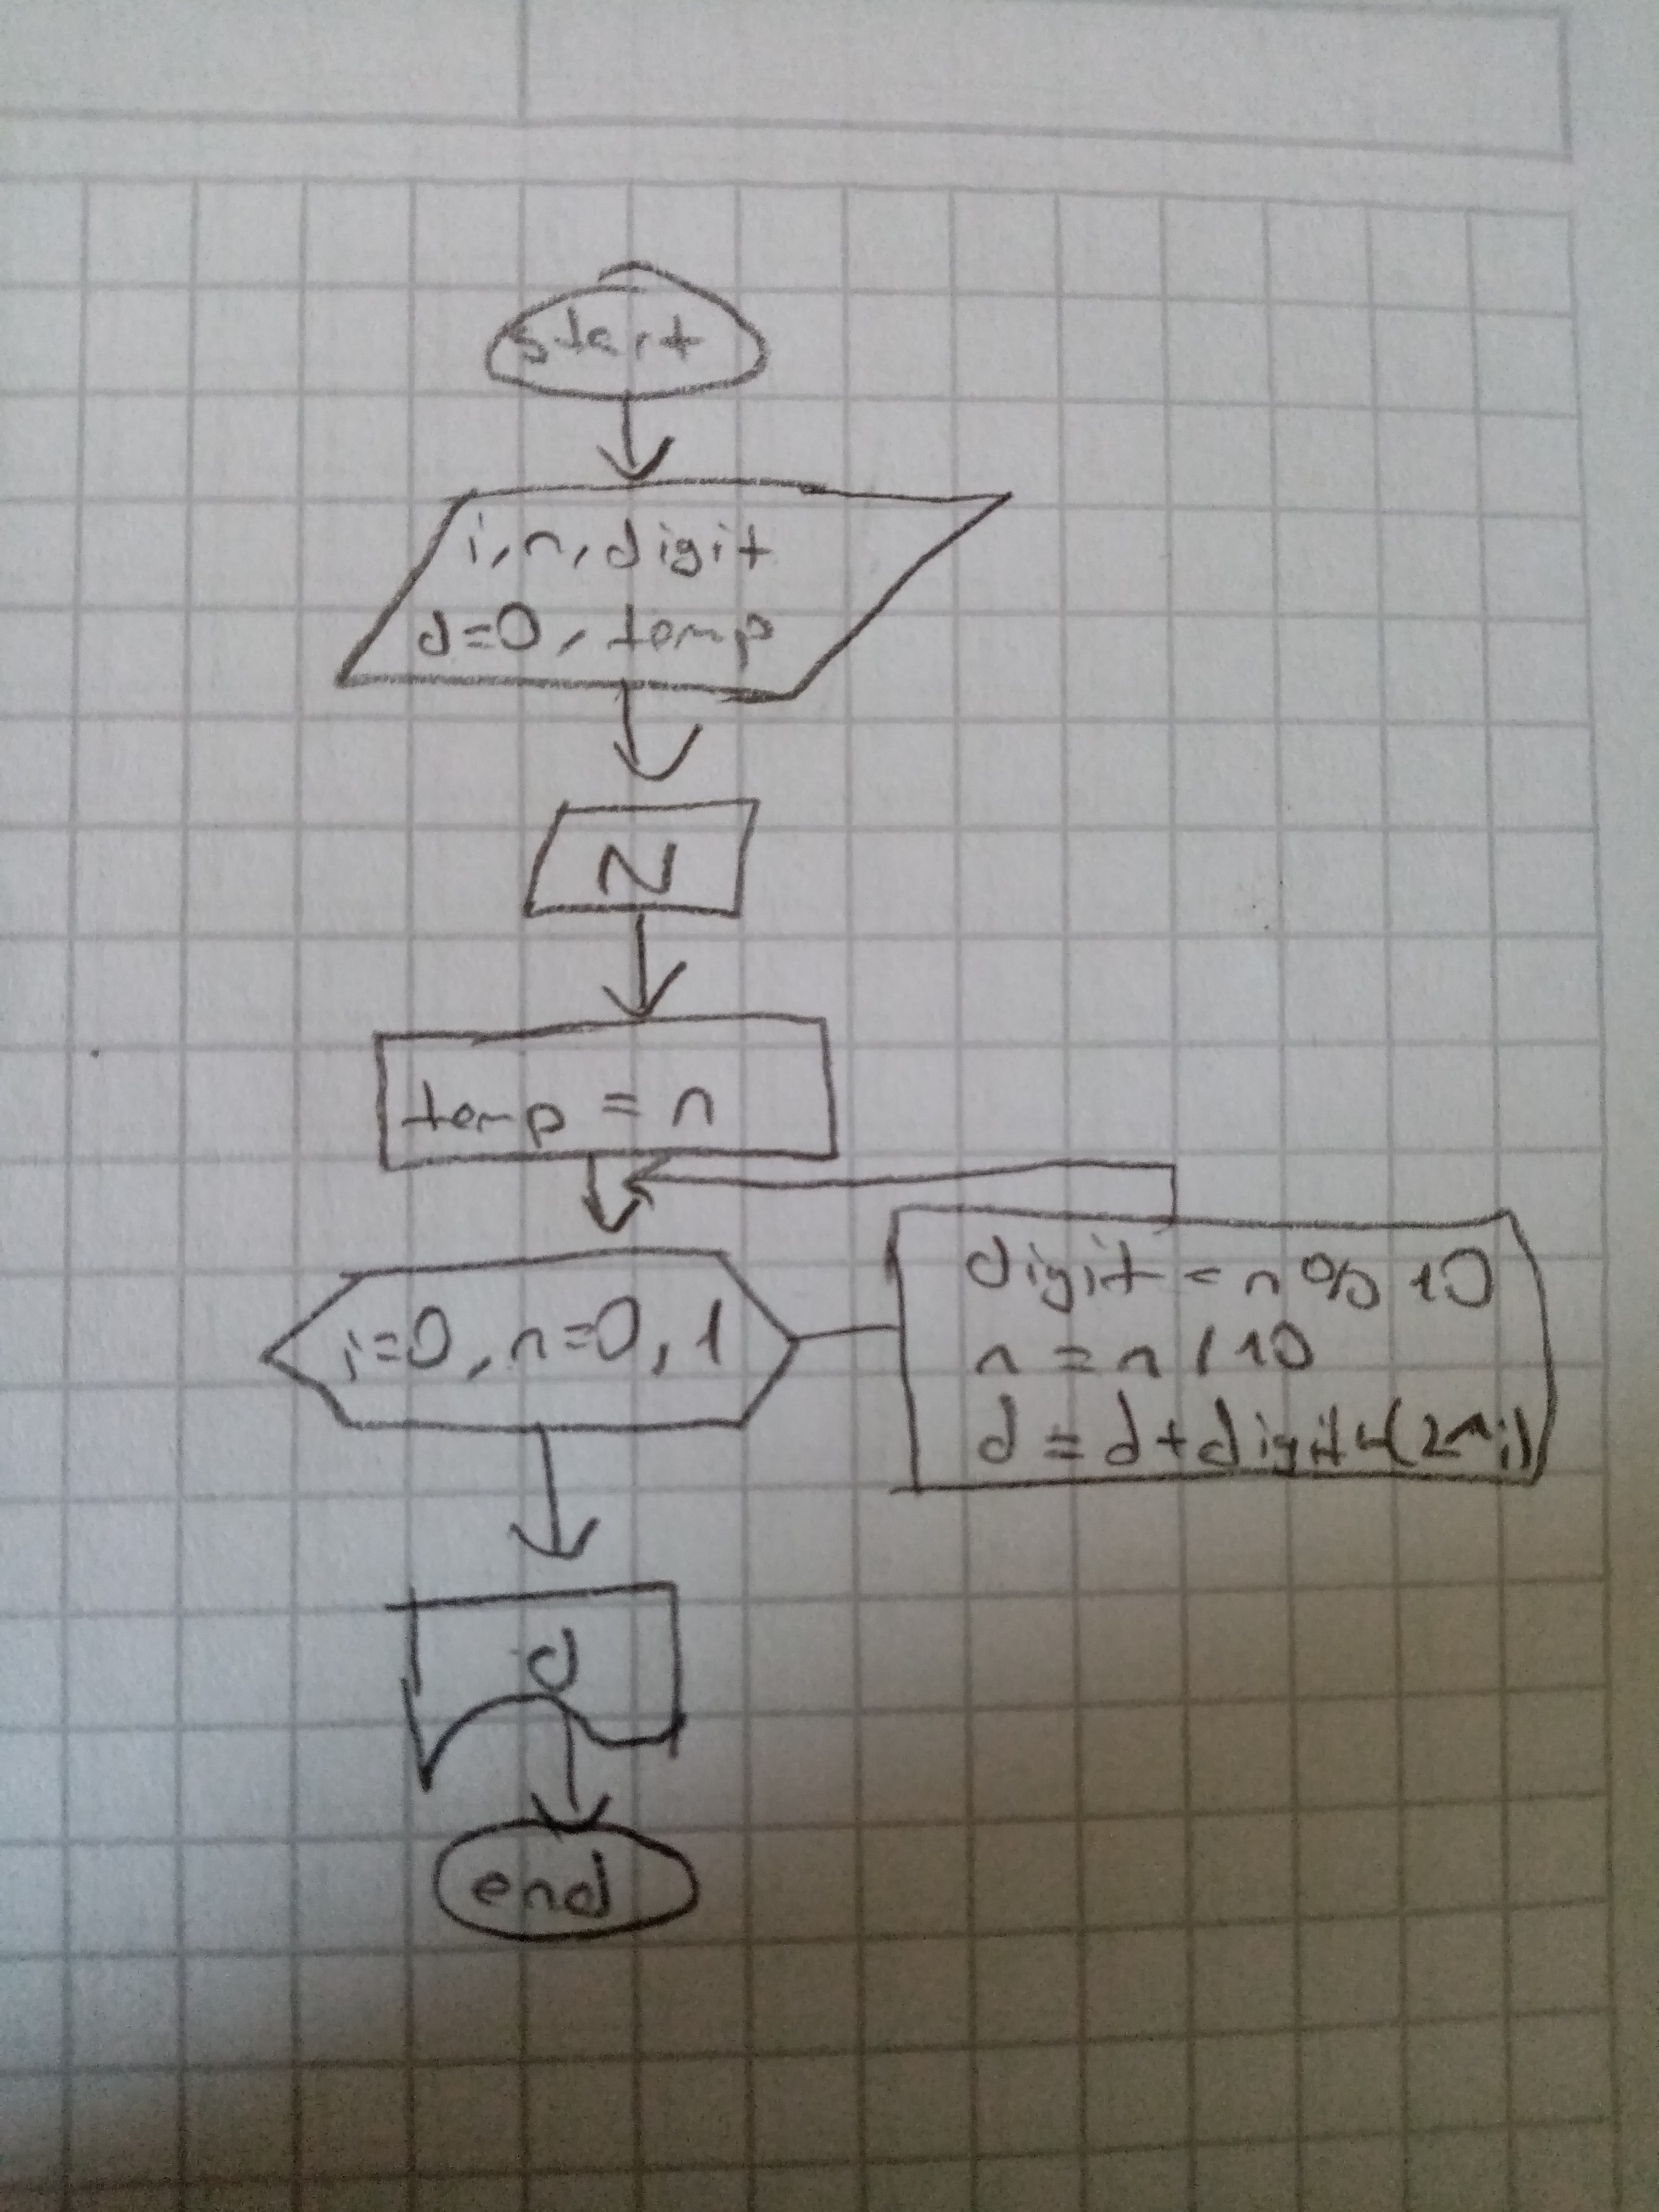 start
i, n, digit
d=0, temp
N
temp = n
i=0, n=0, 1
digit = n % 10
n = n / 10
d = d + digit*(2^i)
d
end